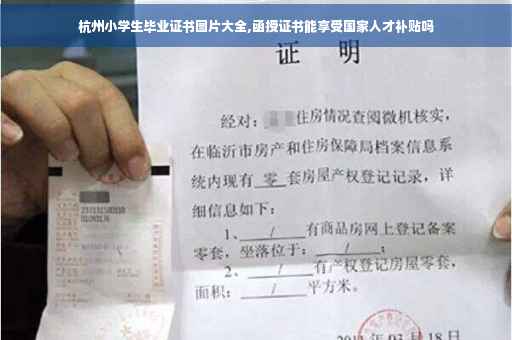 杭州小学生毕业证书图片大全,函授证书能享受国家人才补贴吗
证 明
经对：住房情况查阅微机核实，
在临沂市房产和住房保障局档案信息系
统内现有 零 套房屋产权登记记录，详
细信息如下：
1、 / 有商品房网上登记备案
零套，坐落位于： / ；
2、 / 有产权登记房屋零套，
面积： / 平方米。
03 月 18 日